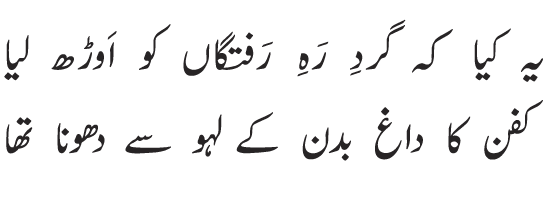 یہ کیا کہ گردِ رَہِ رَفتگاں کو اَوڑھ لیا
کفن کا داغ بدن کے لہو سے دھونا تھا